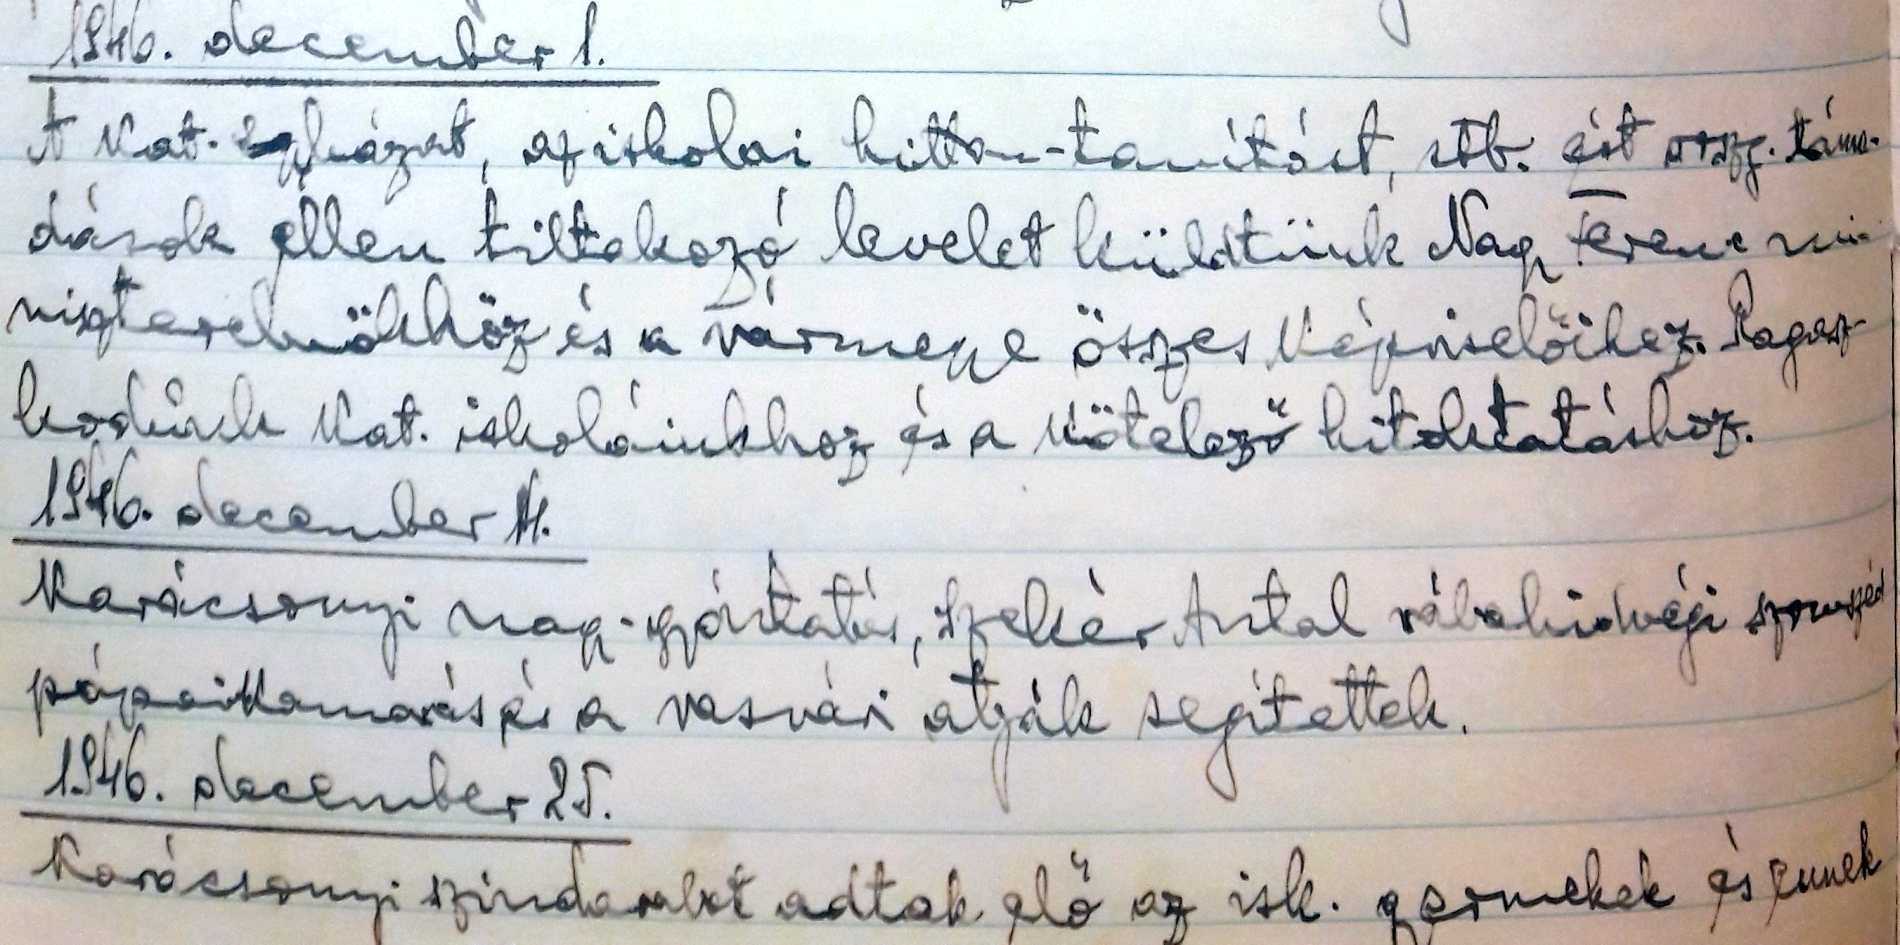 1946. december 1.
A Kat. Egyházat, az iskolai hittan-tanítást, stb. ért orsz. táma-
dások ellen tiltakozó levelet küldtünk Nagy Ferenc mi-
niszterelnökhöz és a vármegye összes képviselőihez. Ragasz-
kodunk kat. iskoláinkhoz és a kötelező hitoktatáshoz.
1946. december
Karácsonyi nagy-gyóntatás, Szekér Antal rábahidvégi szomszéd
pápaikamarás és a vasvári atyák segítettek.
1946. december 25.
Karácsonyi színdarabot adtak elő az isk. gyermekek és ennek